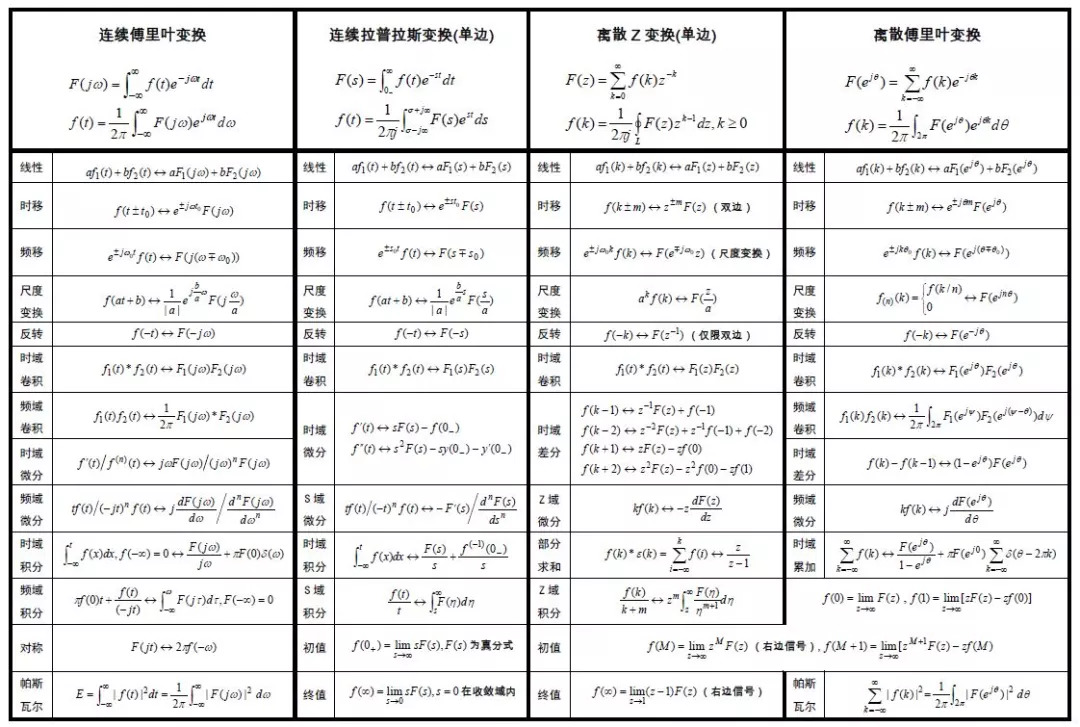 连续傅里叶变换
F(jω)=∫_{-∞}^{∞} f(t)e^{-jωt}dt
f(t)=\frac{1}{2π}∫_{-∞}^{∞} F(jω)e^{jωt}dω
连续拉普拉斯变换(单边)
F(s)=∫_{0_-}^{∞} f(t)e^{-st}dt
f(t)=\frac{1}{2πj}∫_{σ-j∞}^{σ+j∞} F(s)e^{st}ds
离散 Z 变换(单边)
F(z)=∑_{k=0}^{∞} f(k)z^{-k}
f(k)=\frac{1}{2πj}∮_L F(z)z^{k-1}dz, k≥0
离散傅里叶变换
F(e^{jθ})=∑_{k=-∞}^{∞} f(k)e^{-jθk}
f(k)=\frac{1}{2π}∫_{2π} F(e^{jθ})e^{jθk}dθ
线性 af_1(t)+bf_2(t)↔aF_1(jω)+bF_2(jω)
线性 af_1(t)+bf_2(t)↔aF_1(s)+bF_2(s)
线性 af_1(k)+bf_2(k)↔aF_1(z)+bF_2(z)
线性 af_1(k)+bf_2(k)↔aF_1(e^{jθ})+bF_2(e^{jθ})
时移 f(t±t_0)↔e^{±jωt_0}F(jω)
时移 f(t±t_0)↔e^{±st_0}F(s)
时移 f(k±m)↔z^{±m}F(z)（双边）
时移 f(k±m)↔e^{±jθm}F(e^{jθ})
频移 e^{±jω_0t}f(t)↔F(j(ω∓ω_0))
频移 e^{±s_0t}f(t)↔F(s∓s_0)
频移 e^{±jω_0k}f(k)↔F(e^{∓jω_0}z)（尺度变换）
频移 e^{±jkθ_0}f(k)↔F(e^{j(θ∓θ_0)})
尺度变换 f(at+b)↔\frac{1}{|a|}e^{j\frac{b}{a}ω}F(j\frac{ω}{a})
尺度变换 f(at+b)↔\frac{1}{|a|}e^{\frac{b}{a}s}F(\frac{s}{a})
尺度变换 a^kf(k)↔F(\frac{z}{a})
尺度变换 f_{(n)}(k)={f(k/n) 0 ↔F(e^{jnθ})
反转 f(-t)↔F(-jω)
反转 f(-t)↔F(-s)
反转 f(-k)↔F(z^{-1})（仅限双边）
反转 f(-k)↔F(e^{-jθ})
时域卷积 f_1(t)*f_2(t)↔F_1(jω)F_2(jω)
时域卷积 f_1(t)*f_2(t)↔F_1(s)F_2(s)
时域卷积 f_1(t)*f_2(t)↔F_1(z)F_2(z)
时域卷积 f_1(k)*f_2(k)↔F_1(e^{jθ})F_2(e^{jθ})
频域卷积 f_1(t)f_2(t)↔\frac{1}{2π}F_1(jω)*F_2(jω)
时域微分 f'(t)↔sF(s)-f(0_-)
f''(t)↔s^2F(s)-sy(0_-)-y'(0_-)
时域差分 f(k-1)↔z^{-1}F(z)+f(-1)
f(k-2)↔z^{-2}F(z)+z^{-1}f(-1)+f(-2)
f(k+1)↔zF(z)-zf(0)
f(k+2)↔z^2F(z)-z^2f(0)-zf(1)
频域卷积 f_1(k)f_2(k)↔\frac{1}{2π}∫_{2π} F_1(e^{jψ})F_2(e^{j(ψ-θ)})dψ
时域微分 f'(t)/f^{(n)}(t)↔jωF(jω)/(jω)^nF(jω)
时域差分 f(k)-f(k-1)↔(1-e^{jθ})F(e^{jθ})
频域微分 tf(t)/(-jt)^nf(t)↔j\frac{dF(jω)}{dω}/\frac{d^nF(jω)}{dω^n}
S 域微分 tf(t)/(-t)^nf(t)↔-F'(s)/\frac{d^nF(s)}{ds^n}
Z 域微分 kf(k)↔-z\frac{dF(z)}{dz}
频域微分 kf(k)↔j\frac{dF(e^{jθ})}{dθ}
时域积分 ∫_{-∞}^{t} f(x)dx, f(-∞)=0↔\frac{F(jω)}{jω}+πF(0)δ(ω)
时域积分 ∫_{-∞}^{t} f(x)dx↔\frac{F(s)}{s}+\frac{f^{(-1)}(0_-)}{s}
部分求和 f(k)*ε(k)=∑_{i=-∞}^{k} f(i)↔\frac{z}{z-1}
时域累加 ∑_{k=-∞}^{∞} f(k)↔\frac{F(e^{jθ})}{1-e^{jθ}}+πF(e^{j0})∑_{k=-∞}^{∞} δ(θ-2πk)
频域积分 πf(0)t+\frac{f(t)}{(-jt)}↔∫_{-∞}^{ω} F(jτ)dτ, F(-∞)=0
S 域积分 \frac{f(t)}{t}↔∫_s^∞ F(η)dη
Z 域积分 \frac{f(k)}{k+m}↔z^m∫_s^∞ \frac{F(η)}{η^{m+1}}dη
f(0)=\lim_{z→∞} F(z), f(1)=\lim_{z→∞}[zF(z)-zf(0)]
对称 F(jt)↔2πf(-ω)
初值 f(0_+)=\lim_{s→∞} sF(s), F(s)为真分式
初值 f(M)=\lim_{z→∞} z^MF(z)（右边信号）, f(M+1)=\lim_{z→∞}[z^{M+1}F(z)-zf(M)
帕斯瓦尔 E=∫_{-∞}^{∞} |f(t)|^2dt=\frac{1}{2π}∫_{-∞}^{∞} |F(jω)|^2 dω
终值 f(∞)=\lim_{s→0} sF(s), s=0在收敛域内
终值 f(∞)=\lim_{z→1}(z-1)F(z)（右边信号）
帕斯瓦尔 ∑_{k=-∞}^{∞} |f(k)|^2=\frac{1}{2π}∫_{2π} |F(e^{jθ})|^2 dθ